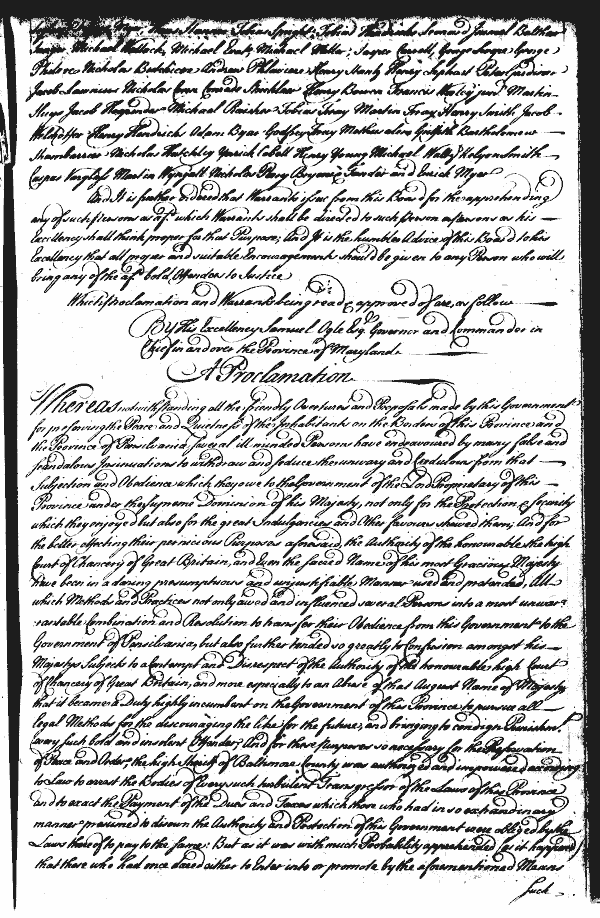 Tobias Spright, Tobias Hendricks Leonard Immel Balthar
Sanger, Michael Wallack, Michael Evatz Michael Miller, Jasper Carvell, George Swope George
Philere Nicholas Butchiere Andrew Philaviere Henry Stantz Henry Sephart Peter Gardiner
Jacob Lawnius Nicholas Conn Conrade Strickler Henry Bowen Francis Worley junr Martin
Sluys Jacob Hagendor Michael Raisher Tobias Fray Martin Fray Henry Smith Jacob
Welchoffer Henry Hendrick Adam Byer Godfrey Fray Mathias Methias Griffith Bartholomew
Shambarriere Nicholas Hatchley Yorrick Cobell Henry Young Michael Waltz Kelyon Smith
Caspar Varglass Martin Wyngall Nicholas Peery Bryonix Tandor and Eurick Myer
And It is further ordered that Warrants issue from this Board for the apprehending
any of such Persons as afd. which Warrants shall be directed to such Person or Persons as his
Excellency shall think proper for that Purpose; And It is the humble Advice of this Board to his
Excellency that all proper and suitable Encouragements should be given to any Person who will
bring any of the afd. bold Offenders to Justice
Which Proclamation and Warrants being read & approved of are, as follow
By His Excellency Samuel Ogle Esqr. Governor and Commander in
Chief in and over the Province of Maryland.
A Proclamation.
Whereas notwithstanding all the friendly Overtures and Proposals made by this Government
for preserving the Peace and Quietness of the Inhabitants on the Borders of this Province and
the Province of Pensilvania, several ill minded Persons have endeavoured by many false and
scandalous Insinuations to withdraw and seduce the unwary and Credulous from that
Subjection and Obedience which they owe to the Government of the Lord Proprietary of this
Province under the supreme Dominion of his Majesty, not only for the Protection & Security
which they enjoyed but also for the great Indulgencies and other favours shewed them; And for
the better effecting their pernicious Purposes aforesaid, the Authority of the honourable the high
Court of Chancery of Great Britain, and Even the sacred Name of his most Gracious Majesty
have been in a daring presumptuous and unjustifiable Manner used and pretended, All
which Methods and Practices not only awed and influenced several Persons into a most unwar=
rantable Combination and Resolution to transfer their Obedience from this Government to the
Government of Pensilvania, but also further tended so greatly to Confusion amongst his
Majestys Subjects to a Contempt and Disrespect of the Authority of the honourable high Court
of Chancery of Great Britain, and more especially to an Abuse of that August Name of Majesty
that it became a Duty highly incumbent on the Government of this Province to pursue all
legal Methods for the discouraging the Like for the future, and bringing to condign Punishmt.
every such bold and insolent Offender; And for these purposes so necessary for the Preservation
of Peace and Order, the high Sheriff of Baltimore County was authorized and impowered according
to Law to arrest the Bodies of every such turbulent Transgressor of the Laws of this Province
and to exact the Payment of the Dues and Taxes which those who had in so extraordinary
manner presumed to disown the Authority and Protection of this Government were obliged by the
Laws thereof to pay to the same: But as it was with much Probability apprehended (as it happened)
that those who had once dared either to Enter into or promote by the aforementioned Means
such